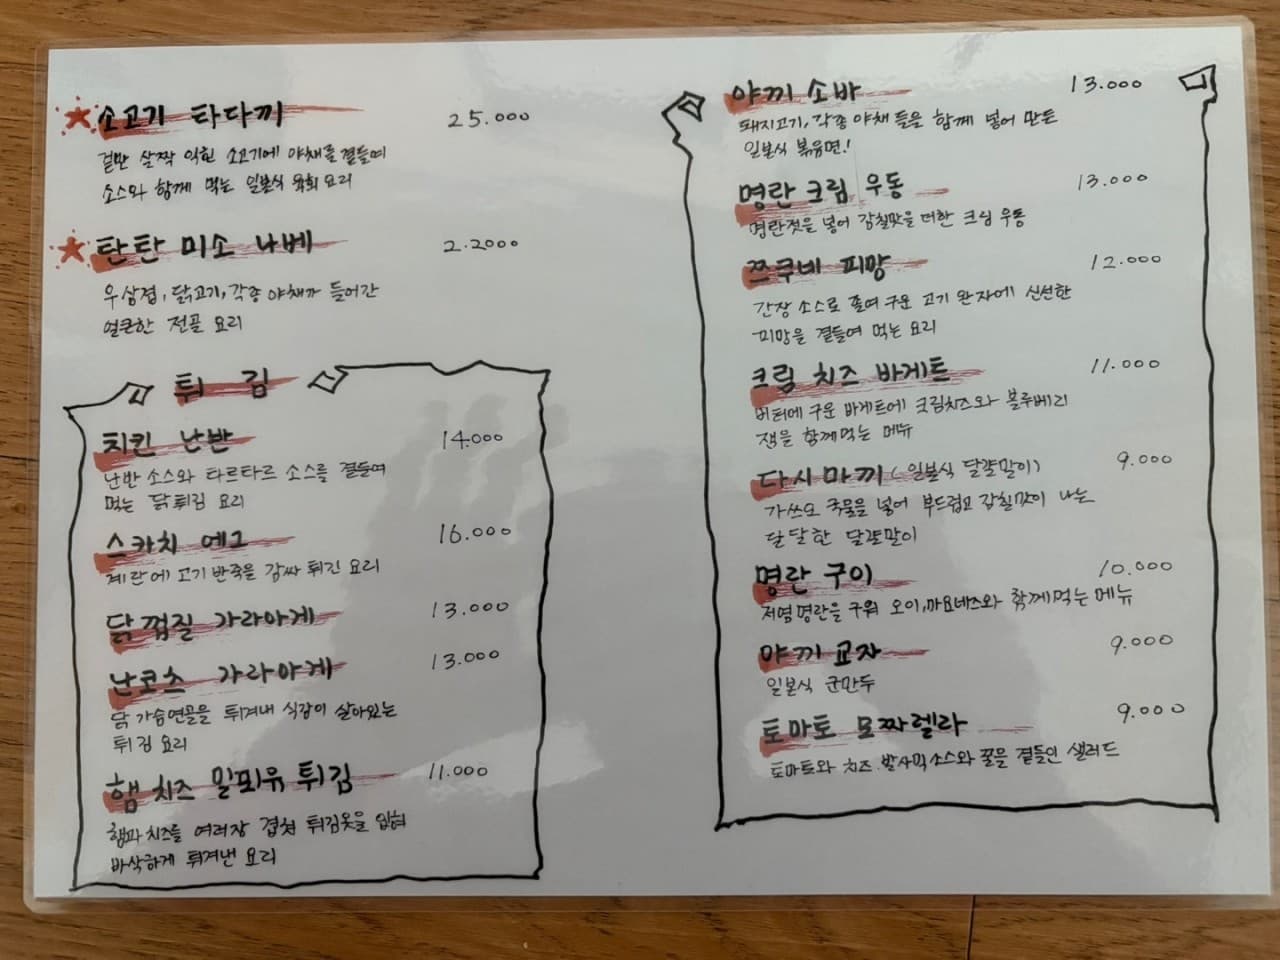 소고기 타다끼 25.000
겉만 살짝 익힌 소고기에 야채를 곁들여
소스와 함께 먹는 일본식 육회 요리
탄탄 미소 나베 2.2000
우삼겹, 닭고기, 각종 야채가 들어간
얼큰한 전골 요리
튀김
치킨 난반 14.000
난반 소스와 타르타르 소스를 곁들여
먹는 닭튀김 요리
스카치 에그 16.000
계란에 고기반죽을 감싸 튀긴 요리
닭껍질 가라아게 13.000
난코츠 가라아게 13.000
닭 가슴연골을 튀겨내 식감이 살아있는
튀김 요리
햄 치즈 밀푀유 튀김 11.000
햄과 치즈를 여러장 겹쳐 튀김옷을 입혀
바삭하게 튀겨낸 요리
야끼 소바 13.000
돼지고기, 각종 야채 들을 함께 넣어 만든
일본식 볶음면!
명란 크림 우동 13.000
명란젓을 넣어 감칠맛을 더한 크림 우동
쯔쿠네 피망 12.000
간장 소스로 졸여 구운 고기 완자에 신선한
피망을 곁들여 먹는 요리
크림 치즈 바게트 11.000
버터에 구운 바게트에 크림치즈와 블루베리
잼을 함께먹는 메뉴
다시마끼 (일본식 달걀말이) 9.000
가쓰오 국물을 넣어 부드럽고 감칠맛이 나는
달달한 달걀말이
명란 구이 10.000
저염명란을 구워 오이,마요네즈와 함께먹는 메뉴
야끼 교자 9.000
일본식 군만두
토마토 모짜렐라 9.000
토마토와 치즈 발사믹소스와 꿀을 곁들인 샐러드